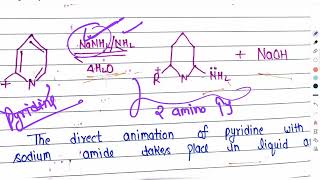 NaNH2/NH2
4H2O
+ NaOH
R
N
N
NH2
Pyridine
2 amino py
The direct animation of pyridine with
sodium amide takes place in liquid a